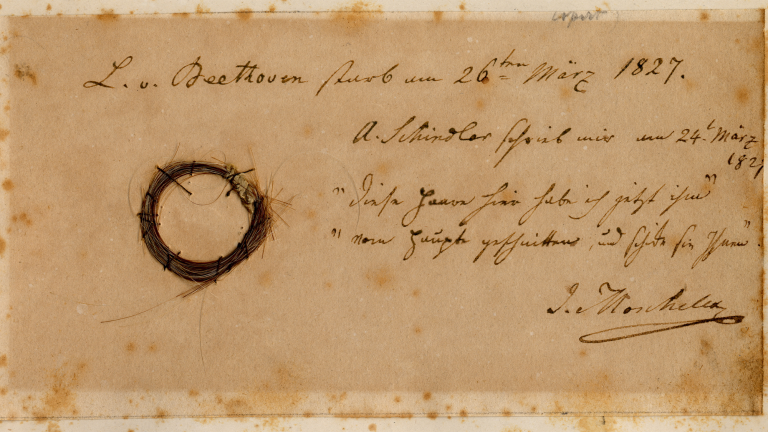 L. v. Beethoven starb am 26ten März 1827.
A. Schindler schrieb mir am 24t März
1827
"Diese Haare hier habe ich jetzt ihm"
"vom Haupte geschnitten, und schicke sie Ihnen".
I. Moscheles